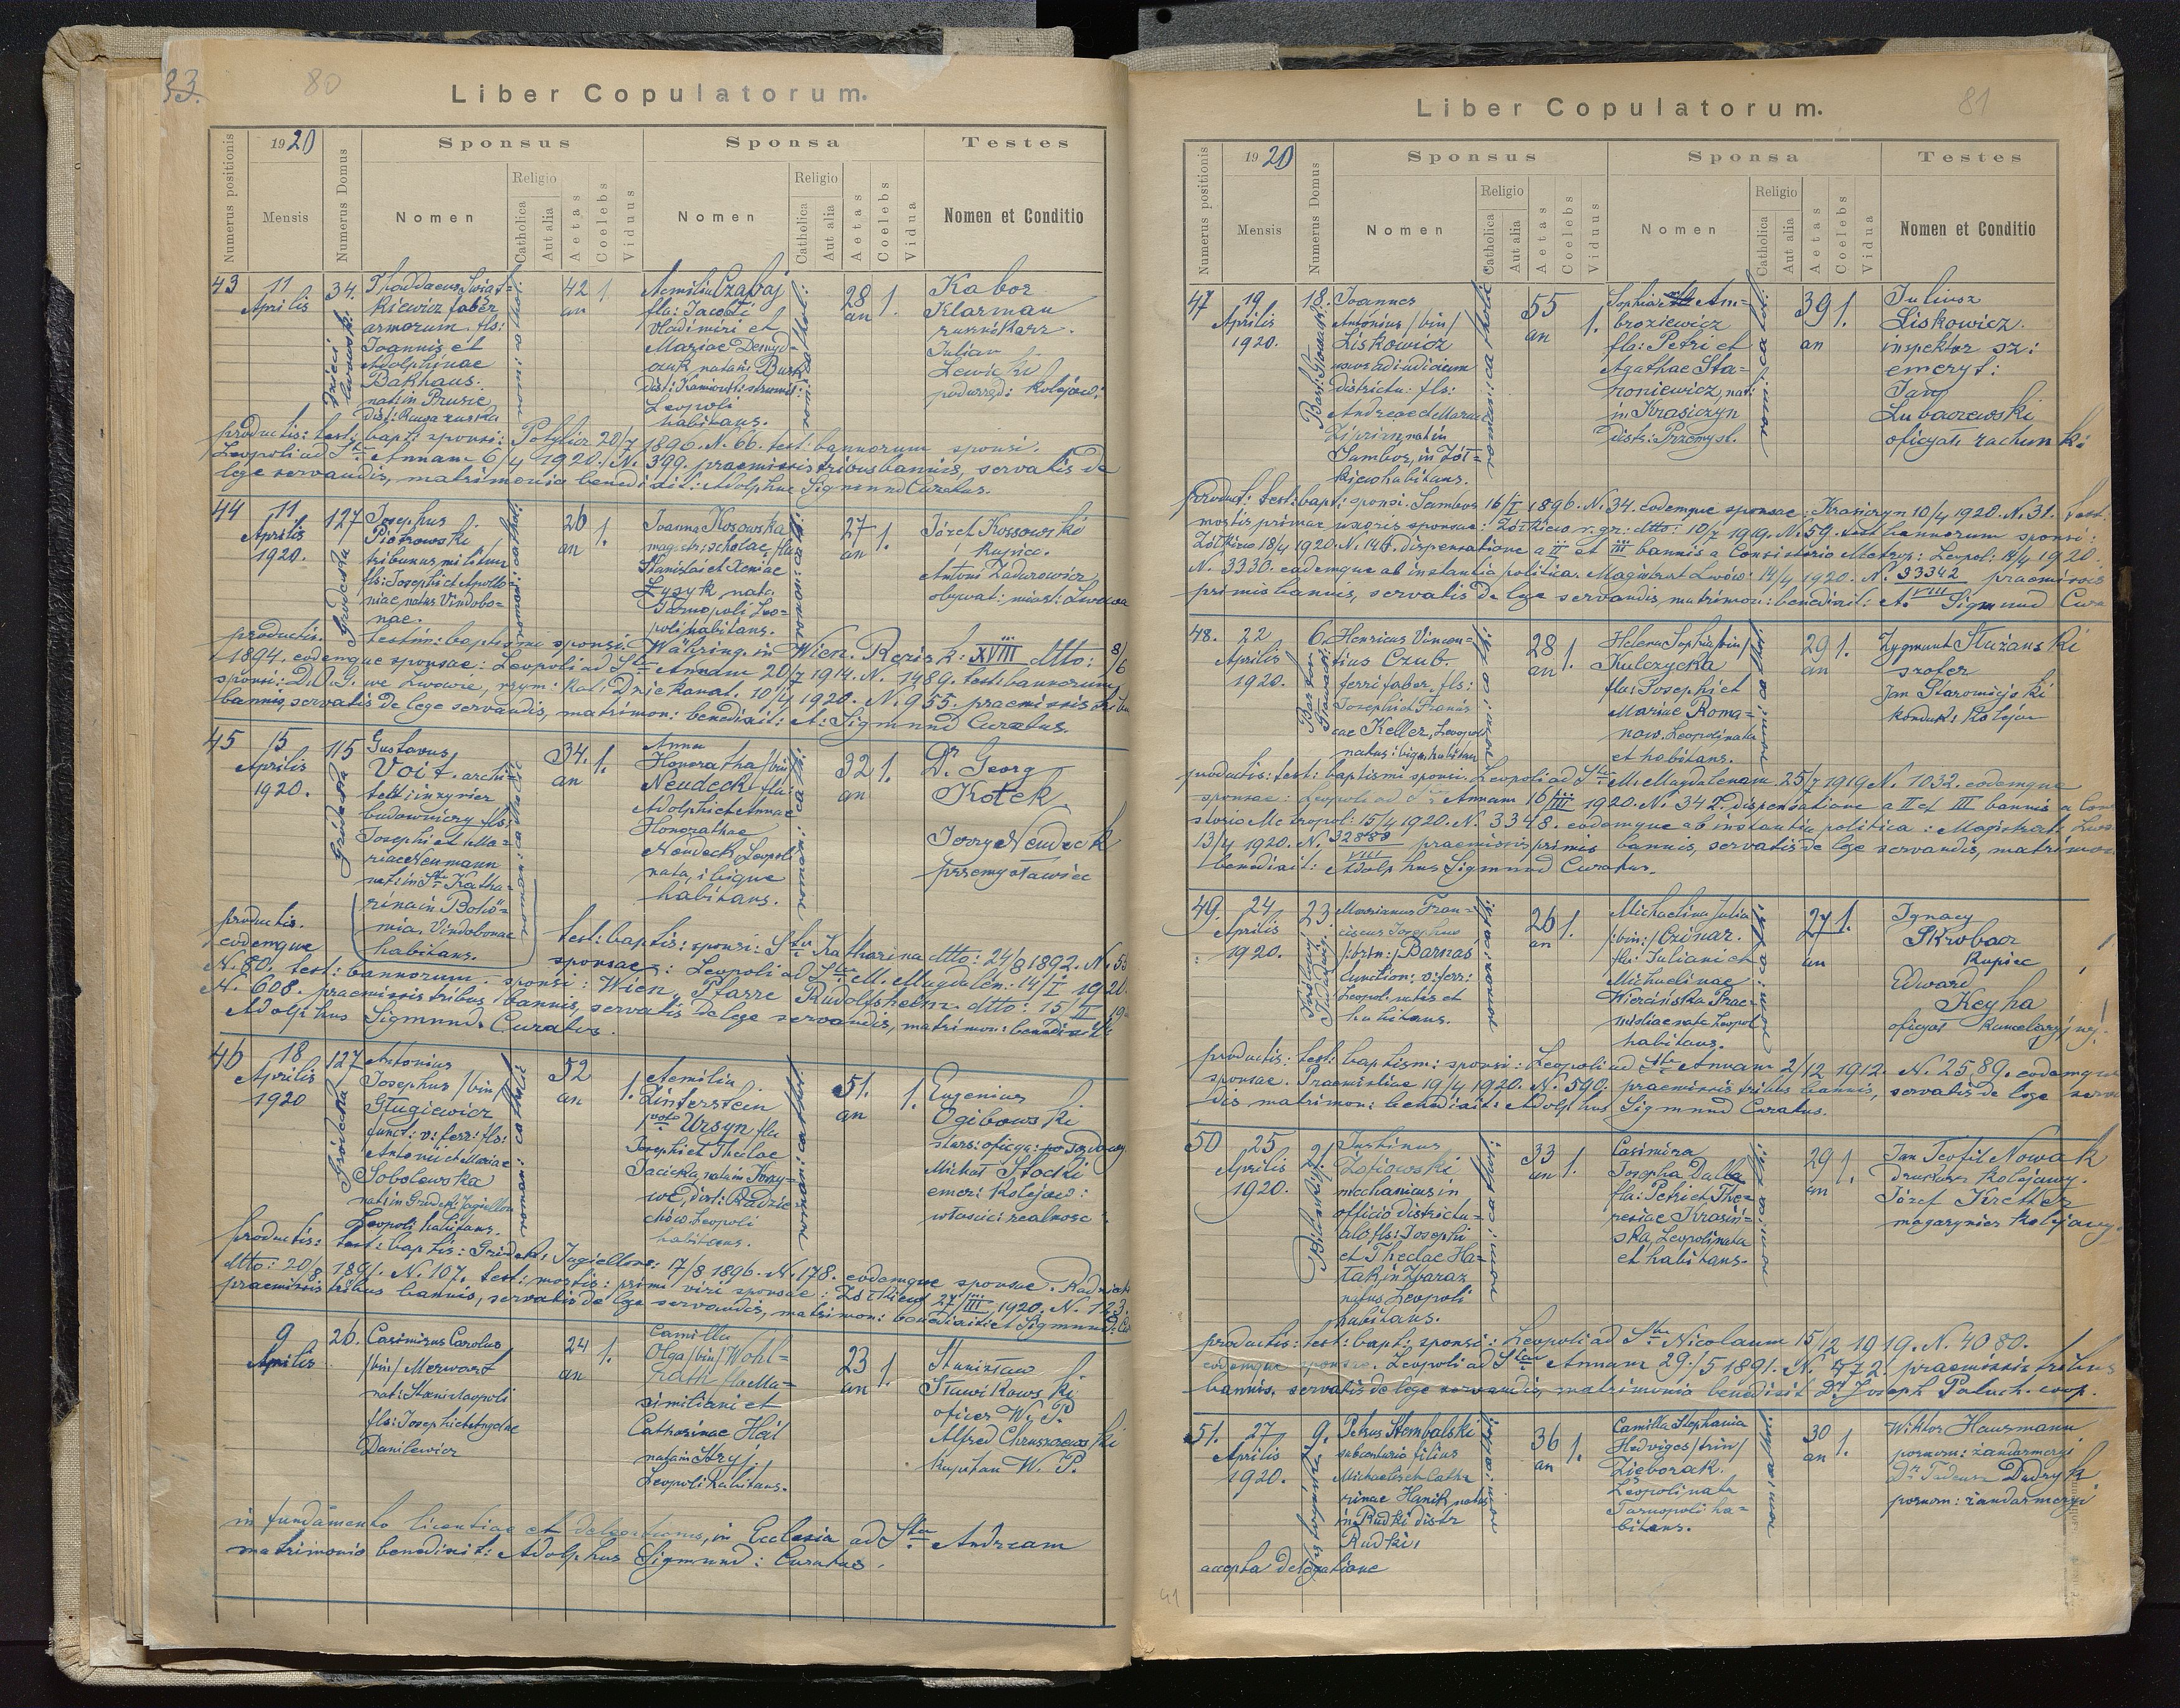 33.
80
Liber Copulatorum.
Numerus positionis
1920
Mensis
Numerus Domus
Sponsus
Nomen
Religio
Catholica
Aut alia
Aetas
Coelebs
Viduus
Sponsa
Nomen
Religio
Catholica
Aut alia
Aetas
Coelebs
Vidua
Testes
Nomen et Conditio
43
11
Aprilis
34.
Thaddaeus Świąt-
kiewicz faber
armorum. fls:
Joannis et
Adolphinae
Bakhaus.
nat: in Prusie
dist: Rawa ruska
42
an
1
Aemilia Czabaj
fla: Jacobi
Vladimiri et
Mariae Demyd-
Leopoli
habitans.
28
an
1.
Kabor
Klarman
rusznikarz.
Julian
Lewicki
podurzęd: kolejow:
productis: test: bapt: sponsi: Potylicz 20/7 1896. N. 66. test: bannorum sponsi.
Leopoli ad Stam Annam 6/4 1920. N. 399. praemissis tribus bannis, servatis de
lege servandis, matrimonia benedixit: Adolphus Sigmund Curatus.
44
11
Aprilis
1920.
127
Gródecka
Josephus
Piotrowski
tribunus militum
fls: Josephi et Apollo-
niae, natus Vindobo-
nae.
26
an
1.
Joanna Kosowska
magistr: scholae, fla
Stanislai et Xeniae
Łysyk, nata
Tarnopoli Leo-
poli habitans.
27
an
1.
Józef Kossowski
kupiec.
Antoni Zadurowicz
obywat: miast: Lwowa
productis. testim: baptismi sponsi: Währing in Wien. Regis k: XVIII dtto: 8/6
1894. eodemque sponsae: Leopoli ad Stam Annam 20/7 1914. N. 1489. test: bannorum
sponsi: D.O.G. we Lwowie, rzym: kat: Dziekanat. 10/4 1920. N. 955. praemissis tribus
bannis, servatis de lege servandis, matrimon: benedixit: A: Sigmund Curatus.
45
15
Aprilis
1920.
115
Gródecka
Gustavus
Voit. archi-
tekt: inżynier
budowniczy fls:
Josephi et Ma-
riae Neumann
nat: in Ste Katha-
rina in Bohö-
mia. Vindobonae
habitans.
34.
an
1.
Anna
Honoratha /bin/
Neudeck fla:
Adolphi et Annae
Honorathae
Neudeck, Leopoli
nata, ibique
habitans.
32
an
1.
Dr. Georg
Kotek
Jerzy Neudeck
przemysławiec
productis. test: baptis: sponsi: Sta Katharina dtto: 24/8 1892. N. 53
eodemque sponsae: Leopoli ad Stam M. Magdalen: 14/I 1920.
N. 80. test: bannorum sponsi: Wien, Pfarre Rudolfsheim dtto: 15/II 19
N. 608. praemissis tribus bannis, servatis de lege servandis, matrimon: benedixit
Adolphus Sigmund Curatus.
46
18
Aprilis
1920
127
Gródecka
Antonius
Josephus /bin/
Gługiewicz
funct: v: ferr: fls:
Antonii et Mariae
Sobolewska
nat: in Gródek: Jagiellon
Leopoli habitans.
52
an
1.
Aemilia
Linterstein
Ursyn fla
Josephi et Theclae
habitans.
51.
an
1.
Eugenius
Ogibowski
Michał Słocki
emer: kolejow:
właścic: realnosc:
productis: test: baptis: Gródek: Jagiellons: 17/8 1896. N. 178. eodemque sponsae:
dtto: 20/8 1891. N. 107. test: mortis: primi viri sponsae: Żółkiew 27/III 1920. N. 123.
praemissis tribus bannis, servatis de lege servandis, matrimon: benedixit A Sigmund Cur
9
Aprilis
26.
Casimirus Carolus
/bin/ Merwart
nat: Stanislaopoli
fls: Josephi et Angelae
Danilewicz
24
an
1.
Camilla
Olga /bin/ Wohl-
rath fla Ma-
similiani et
Catharinae Heil
nata in Stryj.
Leopoli habitans.
23
an
1.
Stanisław
Sławikowski
oficer W. P.
Alfred Chruszczewski
kapitan W. P.
in fundamento licentiae et delegationis, in Ecclesia ad Stum Andream
matrimonio benedixit: Adolphus Sigmund: Curatus.
81
Liber Copulatorum.
Numerus positionis
1920
Mensis
Numerus Domus
Sponsus
Nomen
Religio
Catholica
Aut alia
Aetas
Coelebs
Viduus
Sponsa
Nomen
Religio
Catholica
Aut alia
Aetas
Coelebs
Vidua
Testes
Nomen et Conditio
47
19
Aprilis
1920.
18.
Joannes
Antonius /bin/
Liskowicz
districtu: fls:
Andreae et Mariae
Ziprian, nat: in
Sambor, in Żół-
kiew habitans.
55
an
1.
Sophia Am-
broziewicz
fla: Petri et
Agathae Sta-
roniewicz, nat:
in Krasiczyn
distr: Przemysl.
39
an
1.
Juliusz
Liskowicz.
inspektor sz:
emeryt:
Jan
Lubaczewski
oficyał rachunk:
product: test: bapt: sponsi. Sambor 16/I 1896. N. 34. eodemque sponsae: Krasiczyn 10/4 1920. N. 31. test:
mortis primae uxoris sponsae: Żółkiew r. gr: dtto: 10/7 1919. N. 59. test bannorum sponsi:
Żółkiew 18/4 1920. N. 146. dispensatione a II et III bannis a Consistorio Metrop: Leopol: 14/4 1920.
N. 3330. eademque ab instantia politica. Magistrat Lwów: 14/4 1920. N. 33342/VIII praemissis
primis bannis, servatis de lege servandis, matrimon: benedixit: A. Sigmund Cura
48.
22
Aprilis
1920.
6.
Henricus Vincen-
tius Czub.
ferri faber, fls:
Josephi et Francis-
cae Keller, Leopoli
natus: ibiq. habitans
28
an
1.
Helena Sophia /bin/
Kulczycka
fla: Josephi et
Mariae Roma-
now. Leopoli nata
et habitans.
29
an
1.
Zygmunt Stużański
szofer
Jan Staromiejski
konduk: kolejow
productis: test: baptismi sponsi. Leopoli ad Stam M. Magdalenam 25/7 1919 N. 1032. eodemque
sponsae: Leopoli ad Stam Annam 16/III 1920. N. 342. dispensatione a II et III bannis a Con
storio Metropol: 15/4 1920. N. 3348. eodemque ab instantia politica: Magistrat: Lwów
13/4 1920. N. 32889/VIII praemissis primis bannis, servatis de lege servandis, matrimon
benedixit: Adolphus Sigmund Curatus.
49.
24
Aprilis
1920.
23
Marianus Fran-
ciscus Josephus
/:trin:/ Barnaś
function: v: ferr:
Leopol: natus et
habitans.
26
an
1.
Michaelina Julia
/:bin:/ Czinar.
fla: Juliani et
Michaelinae
Wiercińska Prae-
misliae nata Leopol
habitans.
27
an
1.
Ignacy
Skrobacz
kupiec
Edward
Keyha
oficyał kancelaryjny.
productis: test: baptism: sponsi: Leopoli ad Stam Annam 2/12 1912. N. 2589. eodemque
sponsae. Praemisliae 19/4 1920. N. 590. praemissis tribus bannis, servatis de lege serva
dis matrimon: benedixit: Adolphus Sigmund Curatus.
50
25
Aprilis
1920.
Justinus
mechanicus in
officio districtu-
ali fls: Josephi
et Theclae Ha-
tak, in Zbaraz
natus Leopoli
habitans.
33
an
1.
Casimira
Josepha Dalla
fla: Petri et The-
resiae Krasiń-
ska, Leopoli nata
et habitans.
29
an
1.
Jan Teofil Nowak
drukarz kolejowy.
Józef Kretter
magazynier kolejowy.
productis: test: bapt: sponsi: Leopoli ad Stm Nicolaum 15/12 1919. N. 4080.
eodemque sponsae. Leopoli ad Stam Annam 29/5 1891. N. 472. praemissis tribus
bannis, servatis de lege servandis, matrimonia benedixit Dr Joseph Paluch. coop.
51.
27
Aprilis
1920.
9.
Petrus Stembalski
Michaelis et Catha-
rinae Hanik, natus
in Rudki distr
Rudki.
36
an
1.
Camilla Stephania
Hedviges /trin/
Zieborak.
Leopoli nata
Tarnopoli ha-
bitans.
30
an
1.
Wiktor Hausmann
poruczn: żandarmeryi
Dr Tadeusz Dudryk
poruczn: żandarmeryi
accepta delegatione
41